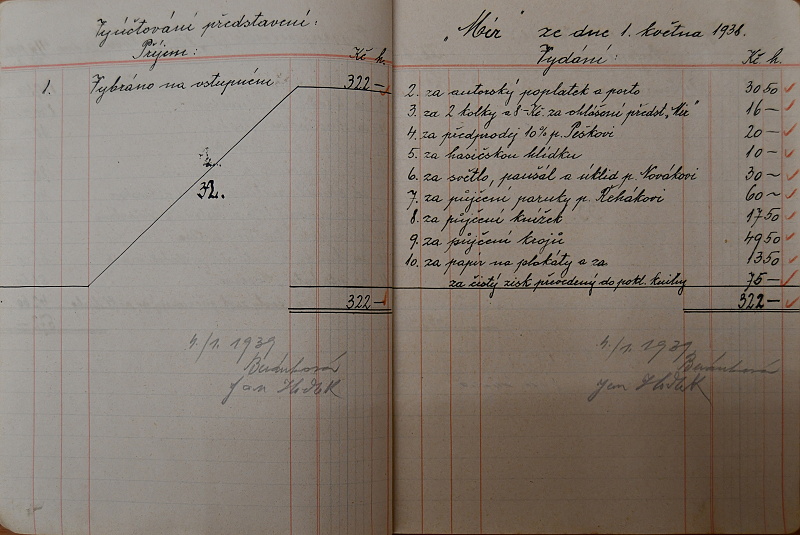 Vyúčtování představení:
Příjem:
Kč h.
1. Vybráno na vstupném 322 —
32.
322 —
4./1. 1939
Jan
"Mér" ze dne 1. května 1938.
Vydání:
Kč h.
2. za autorský poplatek a porto 30 50
3. za 2 kolky a 8 Kč. za ohlášení předst. "Mér" 16 —
4. za předprodej 10% p. Peškovi 20 —
5. za hasičskou hlídku 10 —
6. za světlo, paušál a úklid p. Novákovi 30 —
7. za půjčení paruky p. Řehákovi 60 —
8. za půjčení knížek 17 50
9. za půjčení krojů 49 50
10. za papír na plakáty a za 13 50
za čistý zisk převedený do pokl. knihy 75 —
322 —
4./1. 1939
Jan